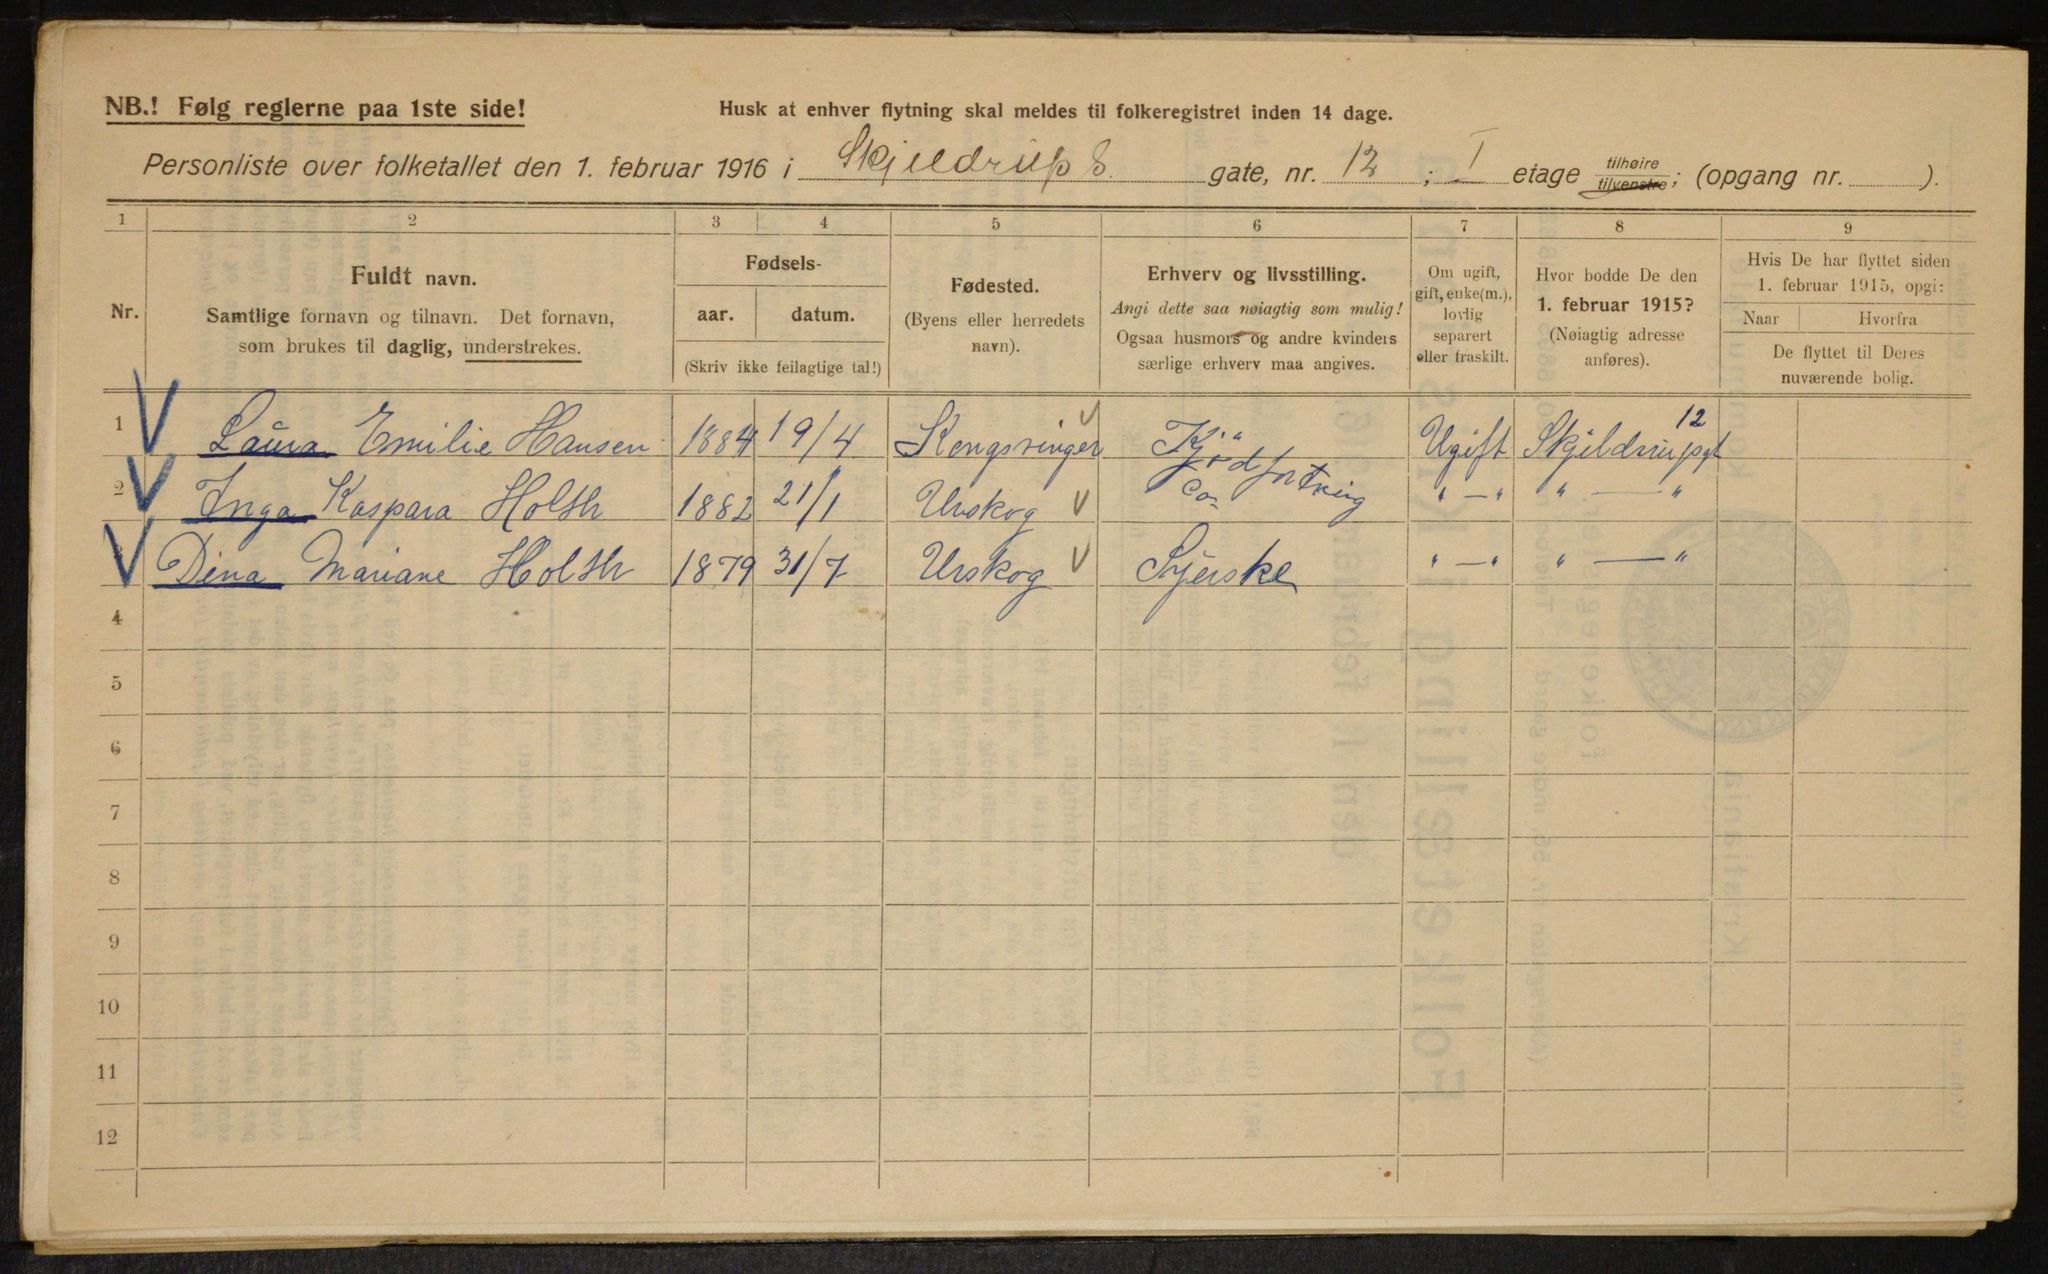 NB.! Følg reglerne paa 1ste side!
Husk at enhver flytning skal meldes til folkeregistret inden 14 dage.
Personliste over folketallet den 1. februar 1916 i Skjeldrups gate, nr. 12 ; I etage tilhøire tilvenstre; (opgang nr. ).
1 2 3 4 5 6 7 8 9
Nr.
Fuldt navn.
Samtlige fornavn og tilnavn. Det fornavn,
som brukes til daglig, understrekes.
Fødsels-
aar. datum.
(Skriv ikke feilagtige tal!)
Fødested.
(Byens eller herredets
navn).
Erhverv og livsstilling.
Angi dette saa nøiagtig som mulig!
Ogsaa husmors og andre kvinders
særlige erhverv maa angives.
Om ugift,
gift, enke(m.),
lovlig
separert
eller fraskilt.
Hvor bodde De den
1. februar 1915?
(Nøiagtig adresse
anføres).
Hvis De har flyttet siden
1. februar 1915, opgi:
Naar Hvorfra
De flyttet til Deres
nuværende bolig.
1 Laura Emilie Hansen 1884 19/4 Kongsvinger Ugift Skjeldrupsgt 12
2 Inga Kaspara Holth 1882 21/1 Urskog " — " " — "
3 Dina Mariane Holth 1879 31/7 Urskog Syerske " — " " — "
4
5
6
7
8
9
10
11
12